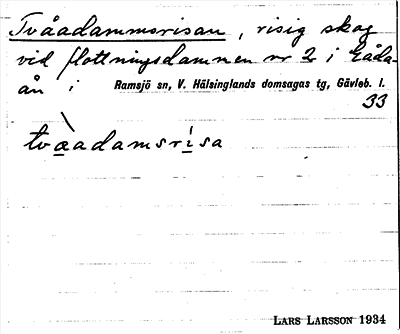 Tvåadammsrisan, risig skog
vid flottningsdammen nr 2 i Låda-
ån i Ramsjö sn, V. Hälsinglands domsagas tg, Gävleb. l.
33
tvåadamsrisa
LARS LARSSON 1934